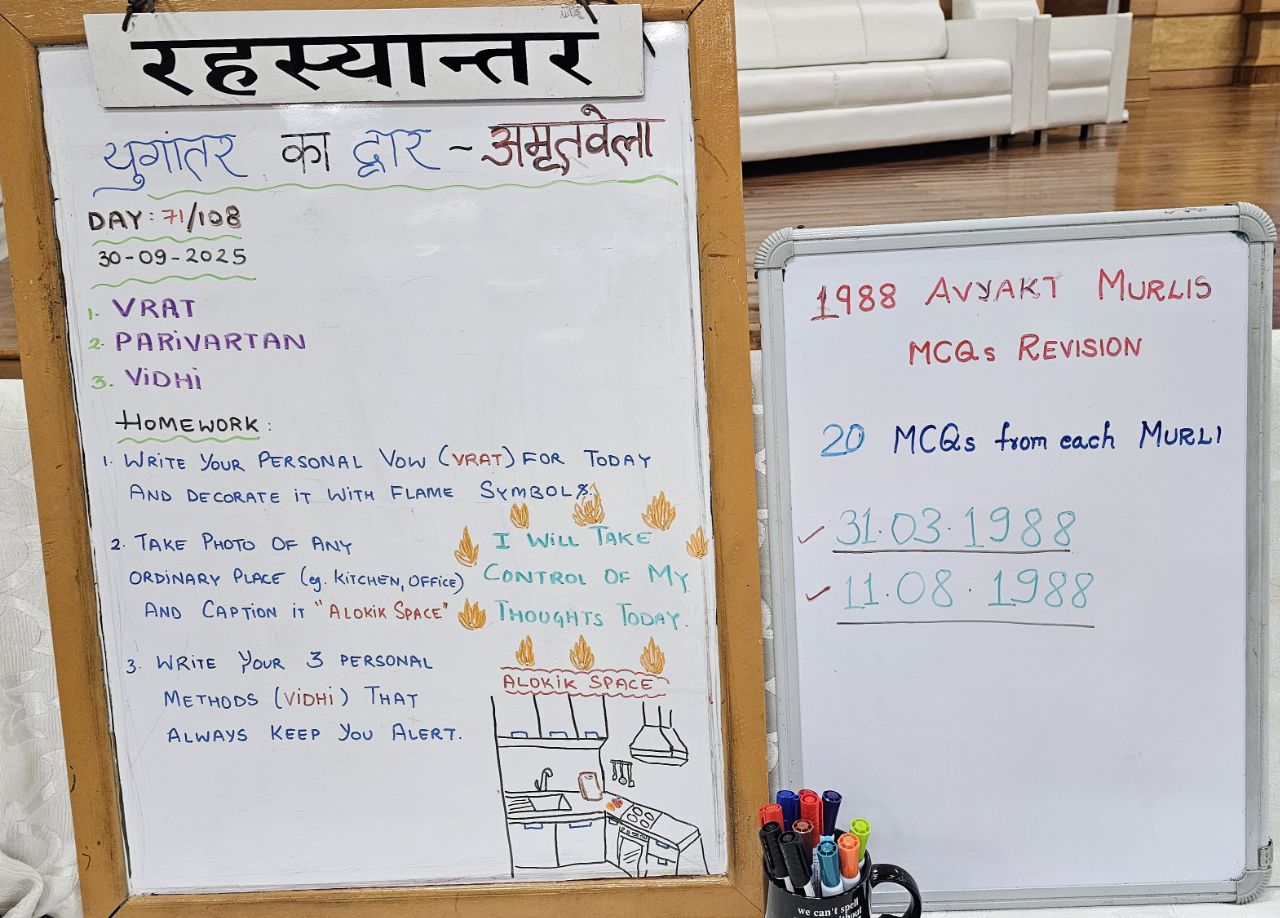 रहस्यान्तर
युगांतर का द्वार - अमृतवेला
DAY: 71/108
30-09-2025
1. VRAT
2. PARIVARTAN
3. VIDHI
HOMEWORK:
1. WRITE YOUR PERSONAL VOW (VRAT) FOR TODAY
AND DECORATE IT WITH FLAME SYMBOLS.
2. TAKE PHOTO OF ANY
ORDINARY PLACE (eg. KITCHEN, OFFICE)
AND CAPTION IT "ALOKIK SPACE"
I WILL TAKE
CONTROL OF MY
THOUGHTS TODAY.
3. WRITE YOUR 3 PERSONAL
METHODS (VIDHI) THAT
ALWAYS KEEP YOU ALERT.
ALOKIK SPACE
1988 AVYAKT MURLIS
MCQs REVISION
20 MCQs from each MURLI
✓ 31.03.1988
✓ 11.08.1988
we can't spell